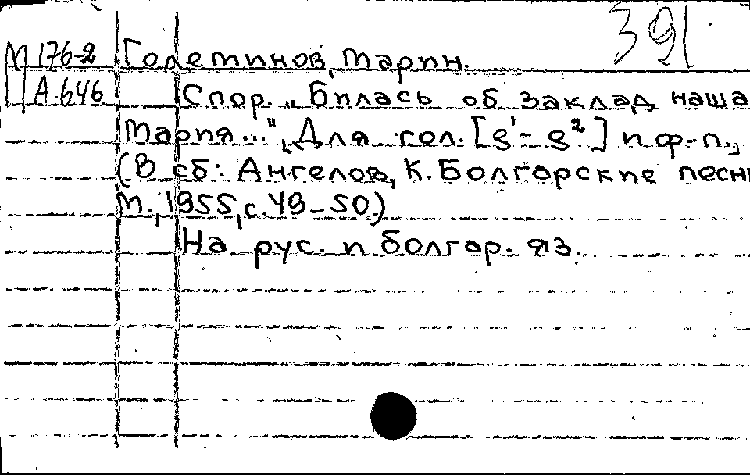 391
М 176-2 Големинов, Марин.
А.646 Спор. „Билась об заклад наша
Мария...", Для гол. [g¹-g²] и ф-п.,
(В сб: Ангелов, К. Болгорские песни
М., 1955, с. 49-50.)
На рус. и болгар. яз.